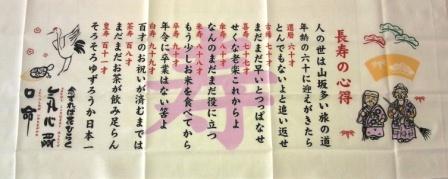 長寿の心得
人の世は山坂多い旅の道
年齢の六十に迎えがきたら
還暦 六十才
とんでもないよと追い返せ
古稀 七十才
まだまだ早いとつっぱなせ
喜寿 七十七才
せくな老楽これからよ
傘寿 八十才
なんのまだまだ役に立つ
米寿 八十八才
もう少しお米を食べてから
卒寿 九十才
年令に卒業はない筈よ
白寿 九十九才
百才のお祝いが済むまでは
茶寿 百八才
まだまだお茶が飲み足らん
皇寿 百十一才
そろそろゆずろうか日本一
寿